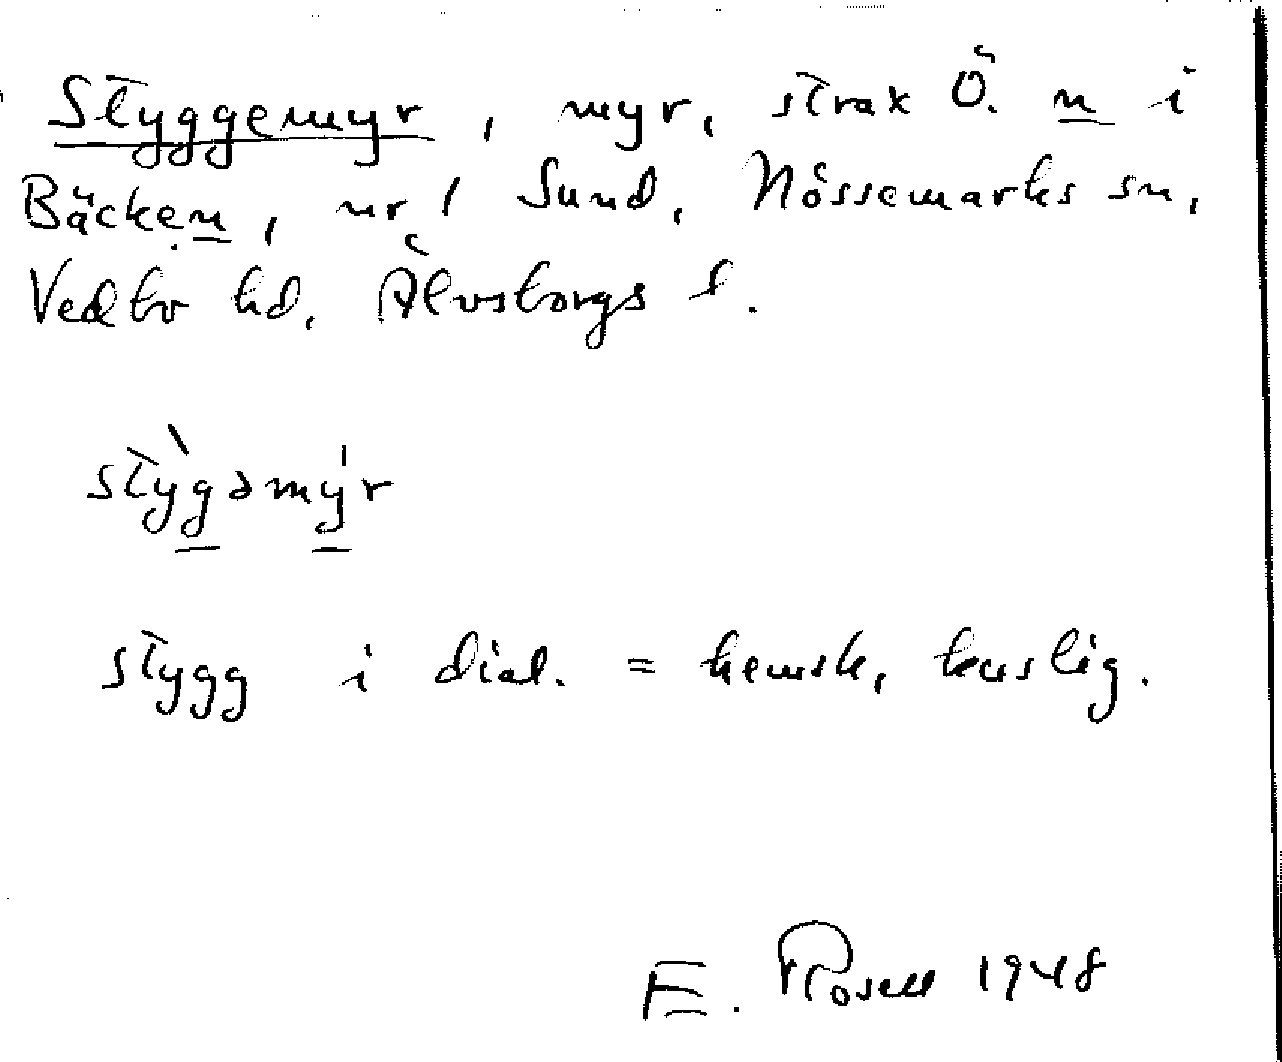 Styggemyr, myr, strax Ö. n i
Bäcken, nr 1 Sund, Nössemarks sn,
Vedbo hd, Älvsborgs l.
stỳgəmy̍r
stygg i dial. = hemsk, kuslig.
E. Rosell 1948